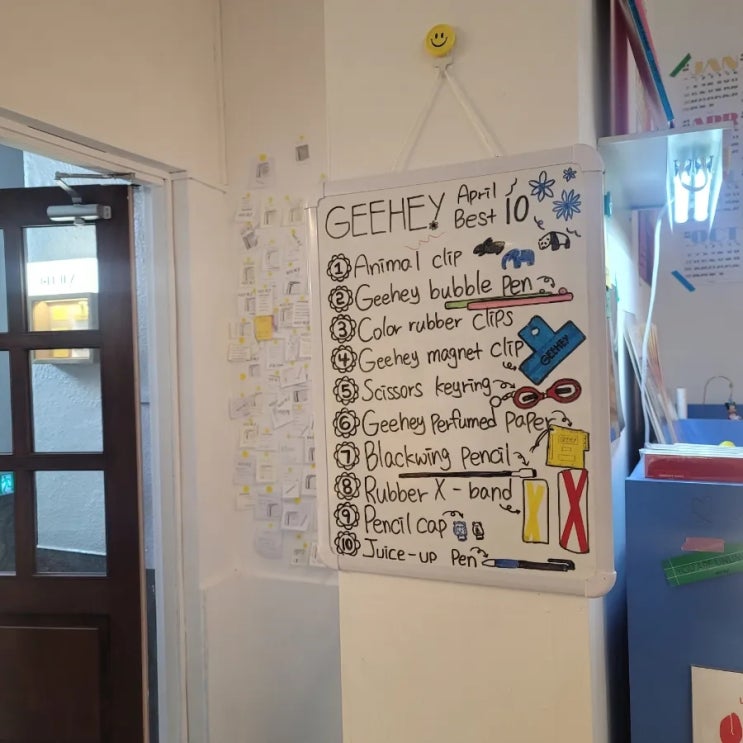 GEEHEY April
Best 10
1 Animal clip
2 Geehey bubble pen
3 Color rubber clips
4 Geehey magnet clip
GEEHEY
5 Scissors keyring
6 Geehey Perfumed Paper
7 Blackwing pencil
8 Rubber X-band
9 Pencil cap
10 Juice-up pen
GEEHEY
JAN
APR
OCT